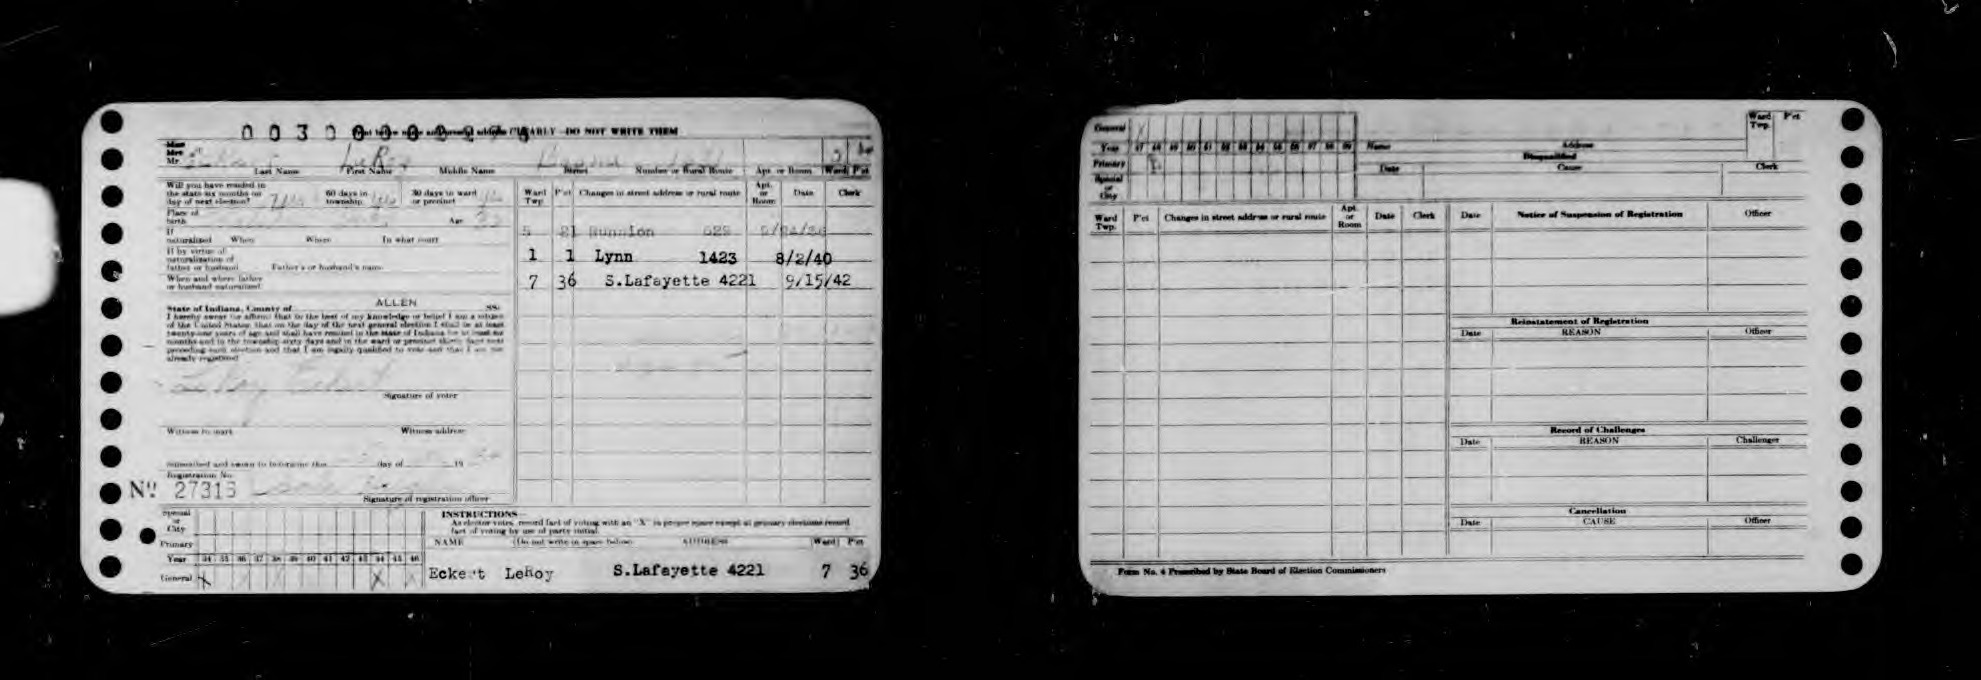 CLEARLY—DO NOT WRITE THEM
Miss
Mrs.
Mr. LeRoy
Last Name First Name Middle Name Street Number or Rural Route Apt. or Room Ward P'ct
Will you have resided in
the state six months on 60 days in 30 days in ward
day of next election? Yes township or precinct
Place of
birth Age
If
naturalized When Where In what court
If by virtue of
naturalization of
father or husband Father's or husband's name
When and where father
or husband naturalized
State of Indiana, County of ALLEN SS:
I hereby swear (or affirm) that to the best of my knowledge or belief I am a citizen
of the United States; that on the day of the next general election I shall be at least
twenty-one years of age and shall have resided in the state of Indiana for at least six
months and in the township sixty days and in the ward or precinct thirty days next
preceding such election and that I am legally qualified to vote and that I am not
already registered
LeRoy Eckert
Signature of voter
Witness to mark Witness address
Subscribed and sworn to before me this day of 19
Registration No.
No. 27315
Signature of registration officer
Ward Twp. P'ct Changes in street address or rural route Apt. or Room Date Clerk
5 21 Runnion
1 1 Lynn 1423 8/2/40
7 36 S.Lafayette 4221 9/15/42
Special
or
City
Primary
Year 34 35 36 37 38 39 40 41 42 43 44 45 46
General X X X X X
INSTRUCTIONS—
As elector votes, record fact of voting with an "X" in proper space except at primary elections record
fact of voting by use of party initial.
NAME (Do not write in space below) ADDRESS Ward P'ct
Eckert LeRoy S.Lafayette 4221 7 36
General X
Year 47 48 49 50 51 52 53 54 55 56 57 58 59
Primary
Special
or
City
Name Address Ward Twp. P'ct
Disqualified
Date Cause Clerk
Ward Twp. P'ct Changes in street address or rural route Apt. or Room Date Clerk
Date Notice of Suspension of Registration Officer
Reinstatement of Registration
Date REASON Officer
Record of Challenges
Date REASON Challenger
Cancellation
Date CAUSE Officer
Form No. 4 Prescribed by State Board of Election Commissioners